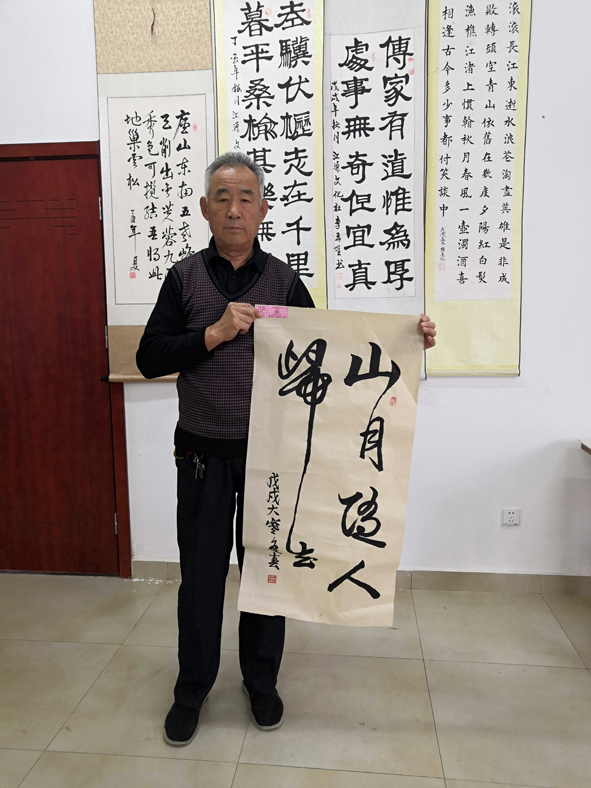 山月随人
歸去
戊戌大寒
東南五老峰
削出金芙蓉九
秀色可攬結吾將此
地巢雲松
丁酉年夏
驥伏櫪志在千里
暮年桑榆其樂無
丁酉年秋月江源文化社
傳家有道惟為厚
處事無奇但宜真
戊戌年秋月江源文化社李
滚滚長江東逝水浪花淘盡英雄是非成
敗轉頭空青山依舊在幾度夕陽紅白髮
漁樵江渚上慣看秋月春風一壺濁酒喜
相逢古今多少事都付笑談中